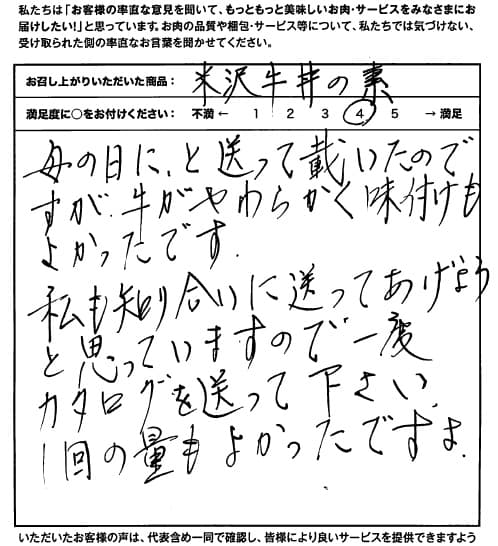 私たちは「お客様の率直な意見を聞いて、もっともっと美味しいお肉・サービスをみなさまにお
届けしたい!」と思っています。お肉の品質や梱包・サービス等について、私たちでは気づけない、
受け取られた側の率直なお言葉を聞かせてください。
お召し上がりいただいた商品： 米沢牛丼の素
満足度に○をお付けください： 不満 ← 1 2 3 4 5 → 満足
母の日に、と送って載いたので
すが、牛がやわらかく味付けも
よかったです。
私も知り合いに送ってあげよう
と思っていますので一度
カタログを送って下さい。
1回の量もよかったですよ。
いただいたお客様の声は、代表含め一同で確認し、皆様により良いサービスを提供できますよう